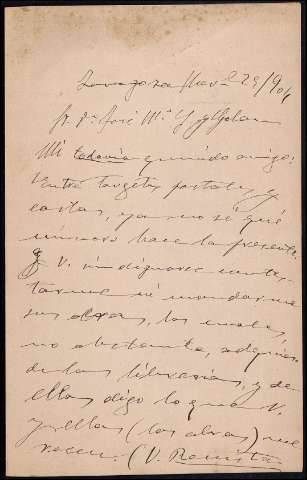 Zaragoza Nov. 29/904
Sr. Dn. José Mª
Mi todavía querido amigo:
Entre targetas postales y
cartas, ya no sé qué
número hace la presente
y V. sin dignarse contes-
tarme ni mandarme
sus obras, las cuales,
no obstante, adquiero
de las librerías, y de
ellas digo lo que V.
y ellas (las obras) me-
recen. (V. Revista